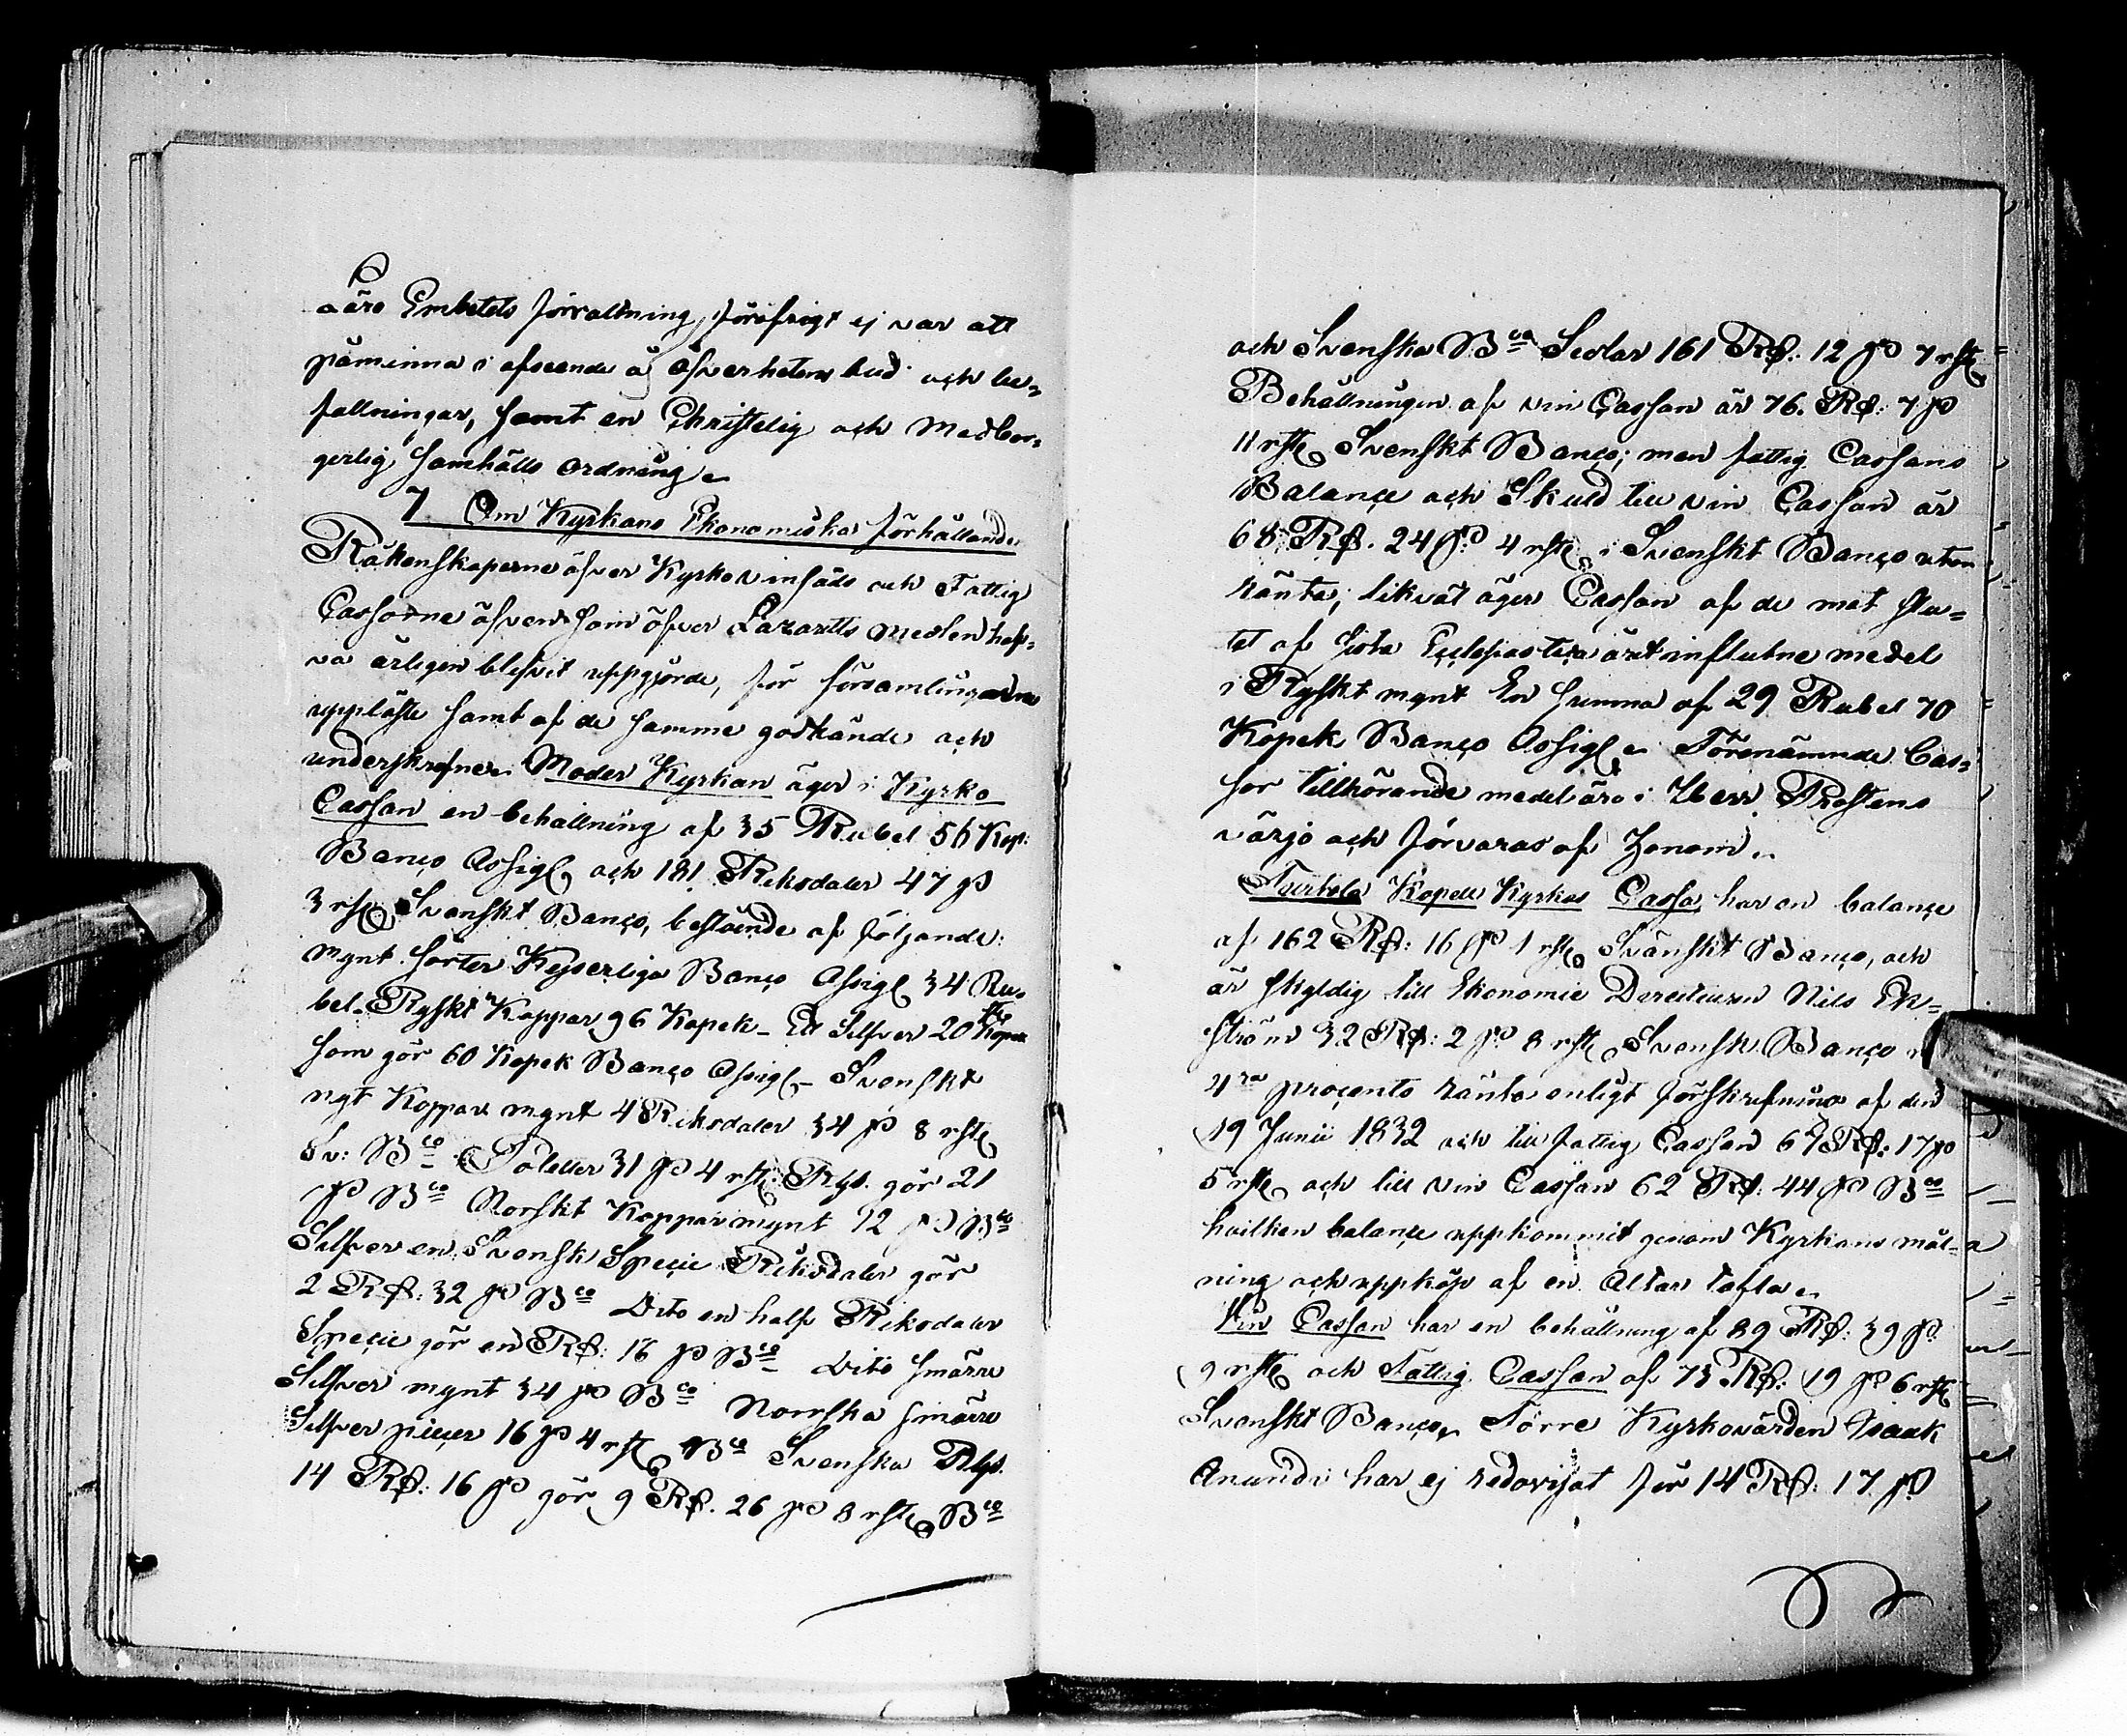 äro Embetets förvaltning, föröfrigt ej var att
påminna i afseende å öfverhetens bud och be-
fallningar, samt en Christelig och Medbor-
gerlig samhälls ordning.
7 Om Kyrkans Ekonomiska förhållande
Räkenskaperne öfver Kyrko vinsäds och Fattig
Cassorne äfvensom öfver Lazaretts Medlen haf-
va årligen blefvit uppgjorde, för församlingarne
uppläste samt af de samme godkände och
underskrefne. Moder Kyrkan äger i Kyrko
Cassan en behållning af 35 Rubel 56 Kop:
Banco Assig. och 181 Riksdaler 47 ß
3 rst. Svenskt Banco, bestående af följande:
Mynt sorter Kejserliga Banco Assig. 34 Ru-
bel. Ryskt Koppar 96 Kopek - Ett Silfver 20 Kopek
som gör 60 Kopek Banco Assig. - Svenskt
ngt Koppar mynt 4 Riksdaler 34 ß 8 rst.
Sv: Bco Poletter 31 ß 4 rst. Rgs. gör 21
ß Bco Norskt Koppar mynt 12 ß Bco
Silfver en Svensk Specie Riksdaler gör
2 Rd: 32 ß Bco Dito en half Riksdaler
Specie gör en Rd: 16 ß Bco Dito smärre
Silfver mynt 34 ß Bco Norrska smärre
Silfver piecer 16 ß 4 rst. Bco Svenska Rgs.
14 Rd: 16 ß gör 9 Rd. 26 ß 8 rst. Bco
och Svenska Bco Sedlar 161 Rd: 12 ß 7 rst.
Behållningen af vin Cassan är 76. Rd: 7 ß
11 rst. Svenskt Banco; men fattig Cassans
Balance och Skuld till vin Cassan är
68 Rd. 24 ß 4 rst. i Svenskt Banco utan
ränta; likväl äger Cassan af de mot slu-
tet af sista Ecclesiastica året influtne medel
i Ryskt mynt En summa af 29 Rubel 70
Kopek Banco Assig. Förenämnde Cas-
sor tillhörande medel äro i Herr Prostens
värjo och förvaras af honom.
Turtola Kapell Kyrkas Cassa har en balance
af 162 Rd: 16 ß 1 rst. Svänskt Banco, och
är skyldig till Ekonomie Directeuren Nils Ek-
ström 32 Rd: 2 ß 8 rst. Svensk Banco
4ra procents ränta enligt förskrifning af den
19 Junii 1832 och till fattig Cassan 67 Rd: 17 ß
5 rst. och till vin Cassan 62 Rd: 44 ß Bco
hvilken balance uppkommit genom Kyrkans mål-
ning och uppköp af en Altar tafla.
Vin Cassan har en behållning af 89 Rd: 39 ß
9 rst. och Fattig Cassan af 73 Rd: 19 ß 6 rst.
Svenskt Banco. Förre Kyrkovärden Isaak
Anundi har ej redovisat för 14 Rd: 17 ß